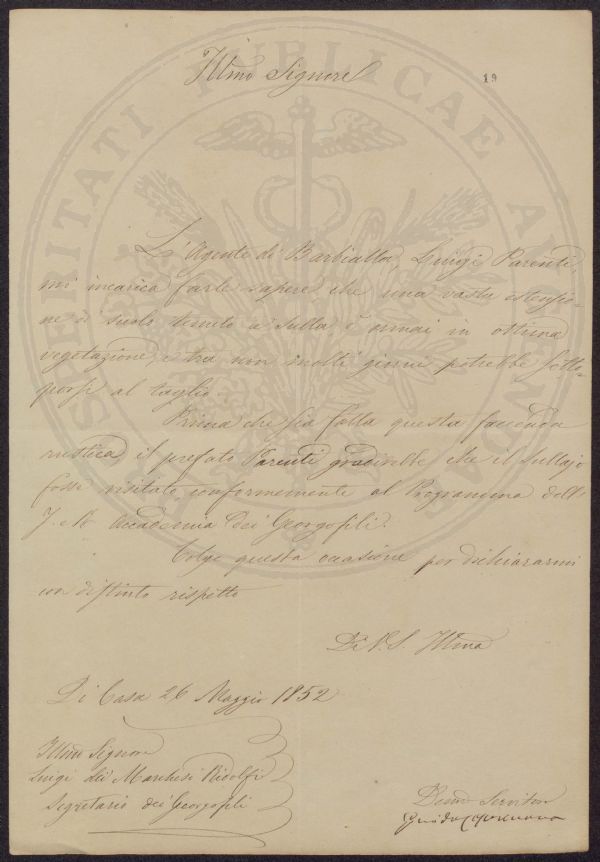 Illmo Signore
19
L'Agente di Barbialla, Luigi Parenti,
mi incarica farle sapere che una vasta estensio-
ne di suolo tenuto a Sulla è ormai in ottima
vegetazione, e tra non molti giorni potrebbe sotto-
porsi al taglio.
Prima che sia fatta questa faccenda
rustica il prefato Parenti gradirebbe che il Sullajo
fosse visitato conformemente al Programma dell'
I. e R. Accademia dei Georgofili.
Colgo questa occasione per dichiararmi
con distinto rispetto
Di V. S. Illma
Di Casa 26 Maggio 1852
Illmo Signore
Luigi dei Marchesi Ridolfi
Segretario dei Georgofili
Devmo Servitore
Guido
POSTERITATI PUBLICAE